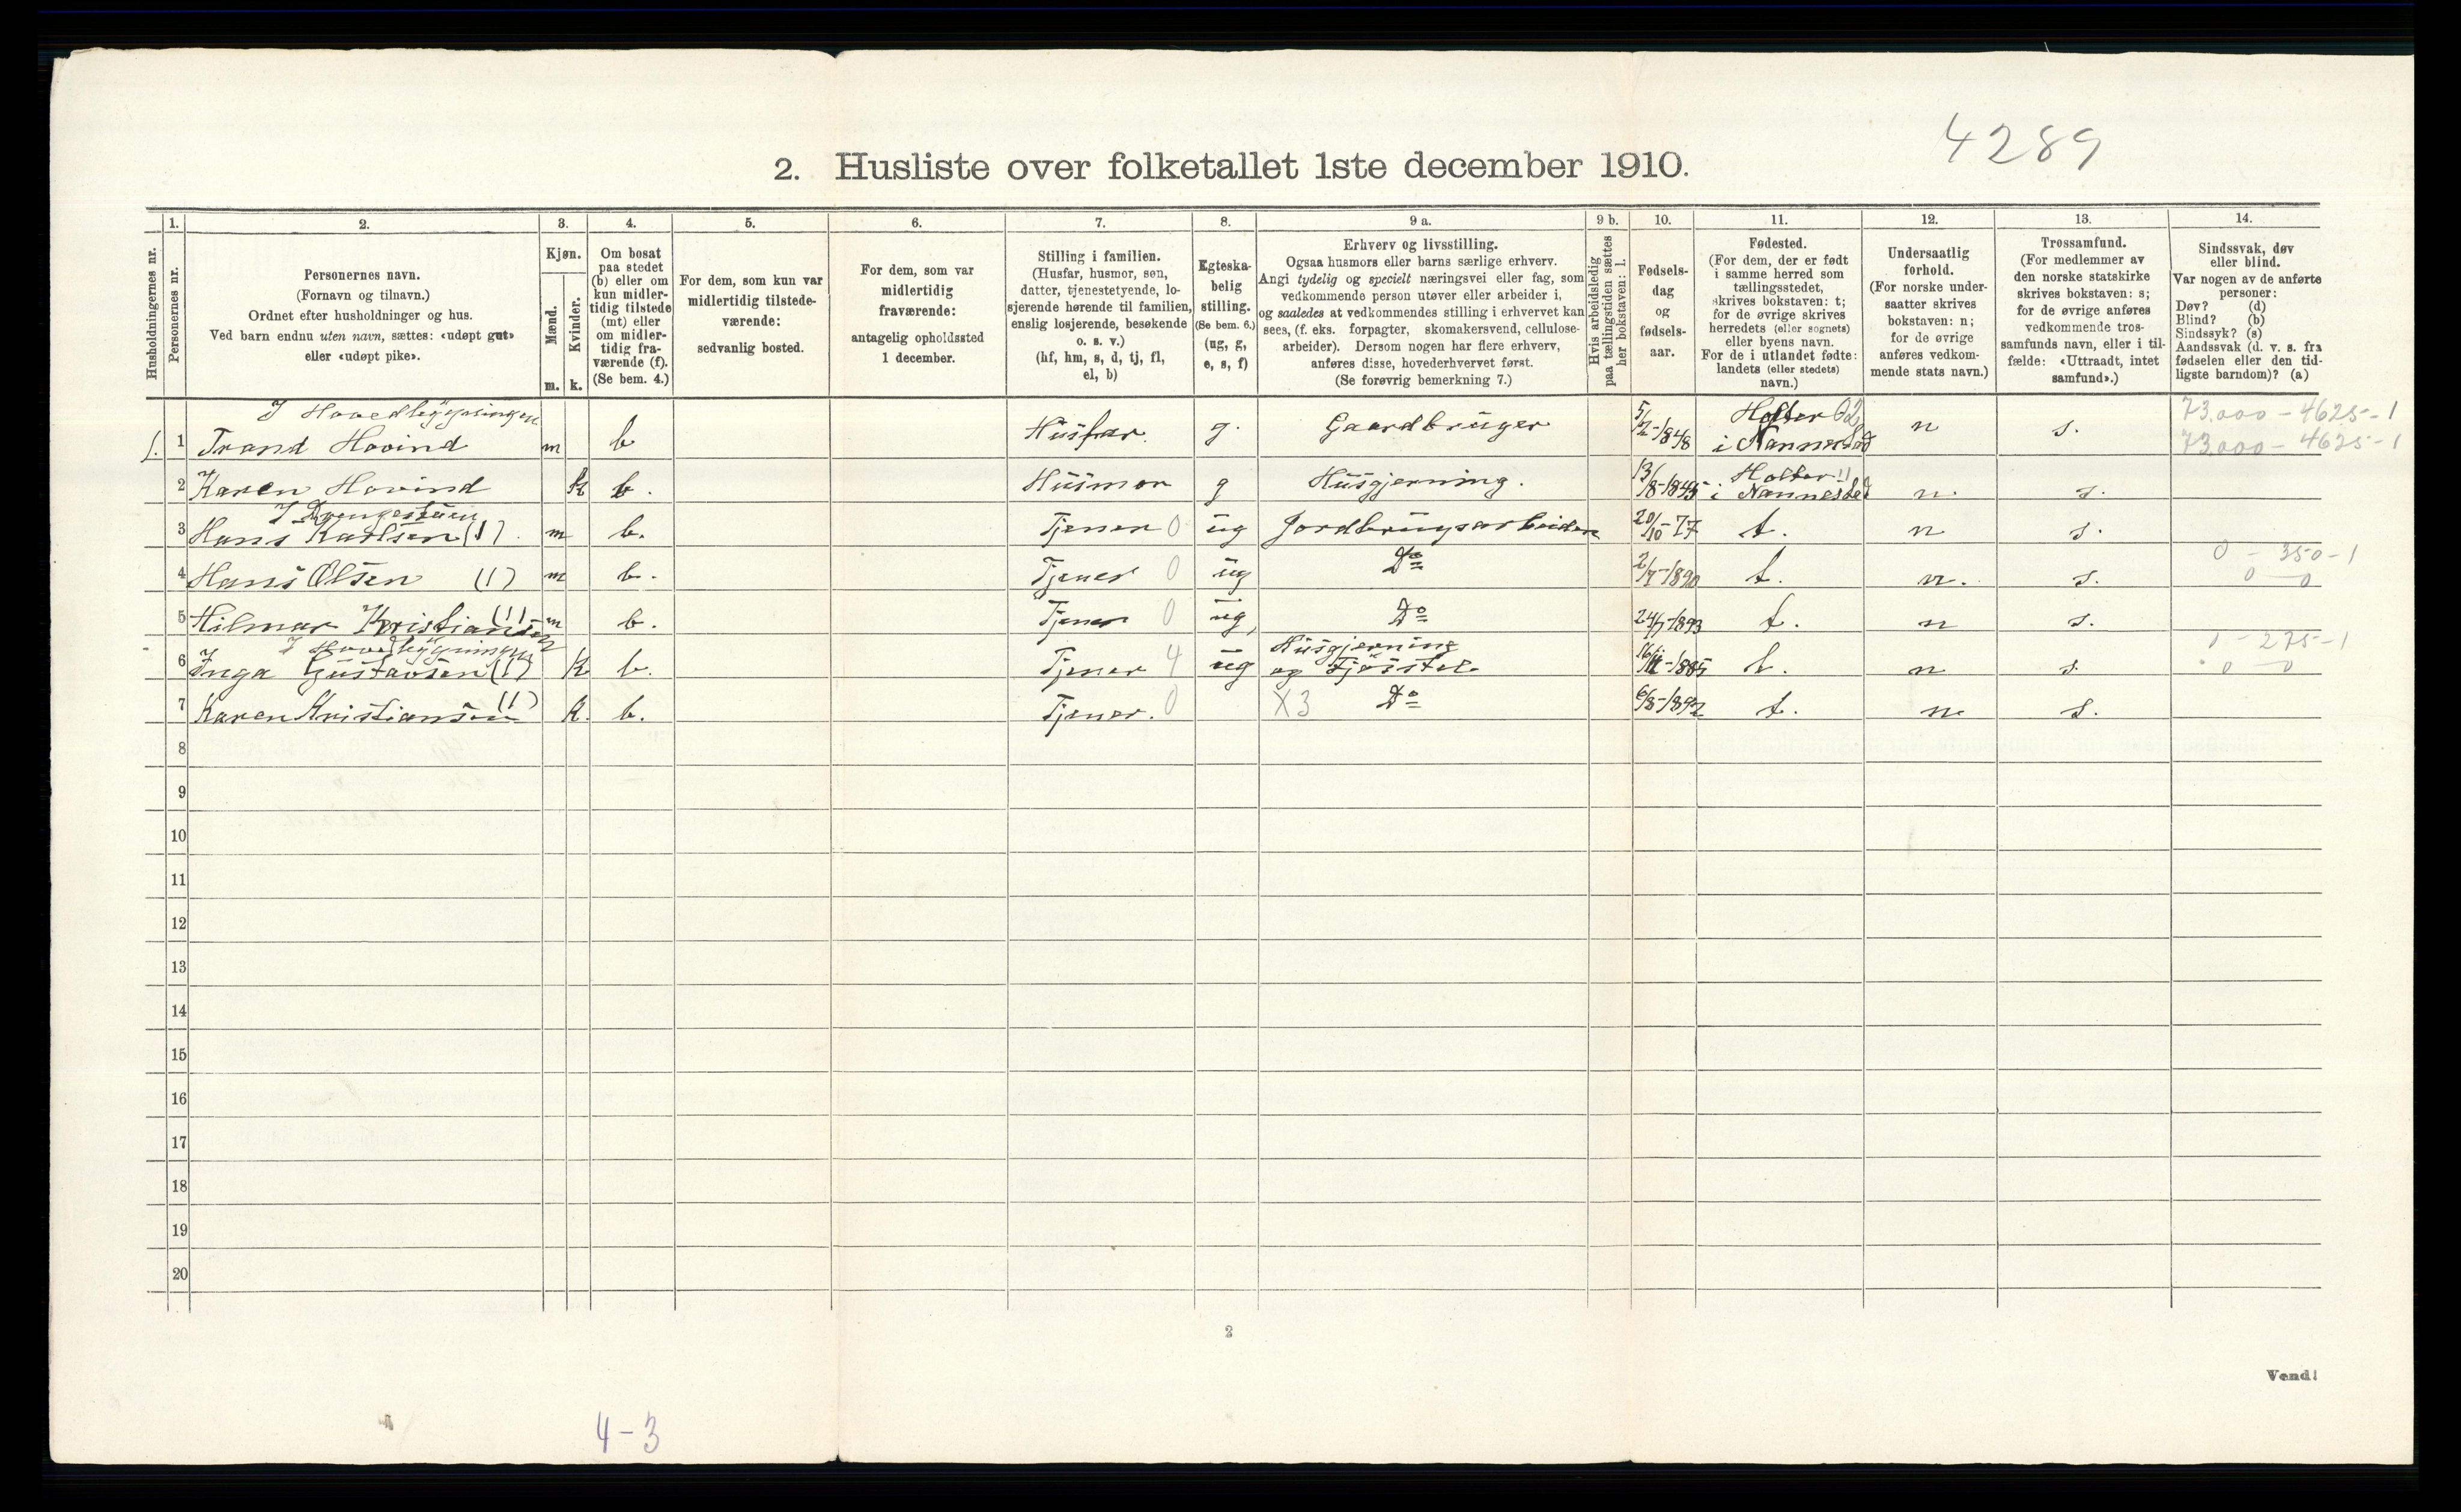 4289
2. Husliste over folketallet 1ste december 1910.
Husholdningernes nr.
1.
Personernes nr.
2.
Personernes navn.
(Fornavn og tilnavn.)
Ordnet efter husholdninger og hus.
Ved barn endnu uten navn, sættes: «udøpt gut»
eller «udøpt pike».
3.
Kjøn.
Mænd.
Kvinder.
m. k.
4.
Om bosat
paa stedet
(b) eller om
kun midler-
tidig tilstede
(mt) eller
om midler-
tidig fra-
værende (f).
(Se bem. 4.)
5.
For dem, som kun var
midlertidig tilstede-
værende:
sedvanlig bosted.
6.
For dem, som var
midlertidig
fraværende:
antagelig opholdssted
1 december.
7.
Stilling i familien.
(Husfar, husmor, søn,
datter, tjenestetyende, lo-
sjerende hørende til familien,
enslig losjerende, besøkende
o. s. v.)
(hf, hm, s, d, tj, fl,
el, b)
8.
Egteska-
belig
stilling.
(Se bem. 6.)
(ug, g,
e, s, f)
9 a.
Erhverv og livsstilling.
Ogsaa husmors eller barns særlige erhverv.
Angi tydelig og specielt næringsvei eller fag, som
vedkommende person utøver eller arbeider i,
og saaledes at vedkommendes stilling i erhvervet kan
sees, (f. eks. forpagter, skomakersvend, cellulose-
arbeider). Dersom nogen har flere erhverv,
anføres disse, hovederhvervet først.
(Se forøvrig bemerkning 7.)
9 b.
Hvis arbeidsledig
paa tællingstiden sættes
her bokstaven: l.
10.
Fødsels-
dag
og
fødsels-
aar.
11.
Fødested.
(For dem, der er født
i samme herred som
tællingsstedet,
skrives bokstaven: t;
for de øvrige skrives
herredets (eller sognets)
eller byens navn.
For de i utlandet fødte:
landets (eller stedets)
navn.)
12.
Undersaatlig
forhold.
(For norske under-
saatter skrives
bokstaven: n;
for de øvrige
anføres vedkom-
mende stats navn.)
13.
Trossamfund.
(For medlemmer av
den norske statskirke
skrives bokstaven: s;
for de øvrige anføres
vedkommende tros-
samfunds navn, eller i til-
fælde: «Uttraadt, intet
samfund».)
14.
Sindssvak, døv
eller blind.
Var nogen av de anførte
personer:
Døv? (d)
Blind? (b)
Sindssyk? (s)
Aandssvak (d. v. s. fra
fødselen eller den tid-
ligste barndom)? (a)
I Hovedbygningen
73.000 - 4625 - 1
1. 1 Trand Hovind m b Husfar. g. Gaardbruger 5/2-1848 Holter i Nannestad n s. 73.000 - 4625 - 1
2 Karen Hovind k b. Husmor g Husgjerning. 13/8-1845 Holter i Nannestad n. s.
I Drengestuen
3 Hans Karlsen (1). m b. Tjener 0 ug Jordbrugsarbeider 20/10-77 t. n s.
0 - 350 - 1
4 Hans Olsen (1) m b. Tjener 0 ug Do 2/7-1890 t. n. s. 0 0
5 Hilmar Kristiansen (1) m b. Tjener 0 ug, Do 24/7-1893 t. n s.
I Hovedbygningen
6 Inga Gustavsen (1) K b. Tjener 4 ug Husgjerning og Fjøsstel 1885 t. n s. 275 - 1
0 0
7 Karen Kristiansen (1) k. b. Tjener. 0 X3 Do 6/8-1892 t. n. s.
8
9
10
11
12
13
14
15
16
17
18
19
20
2
Vend!
4-3